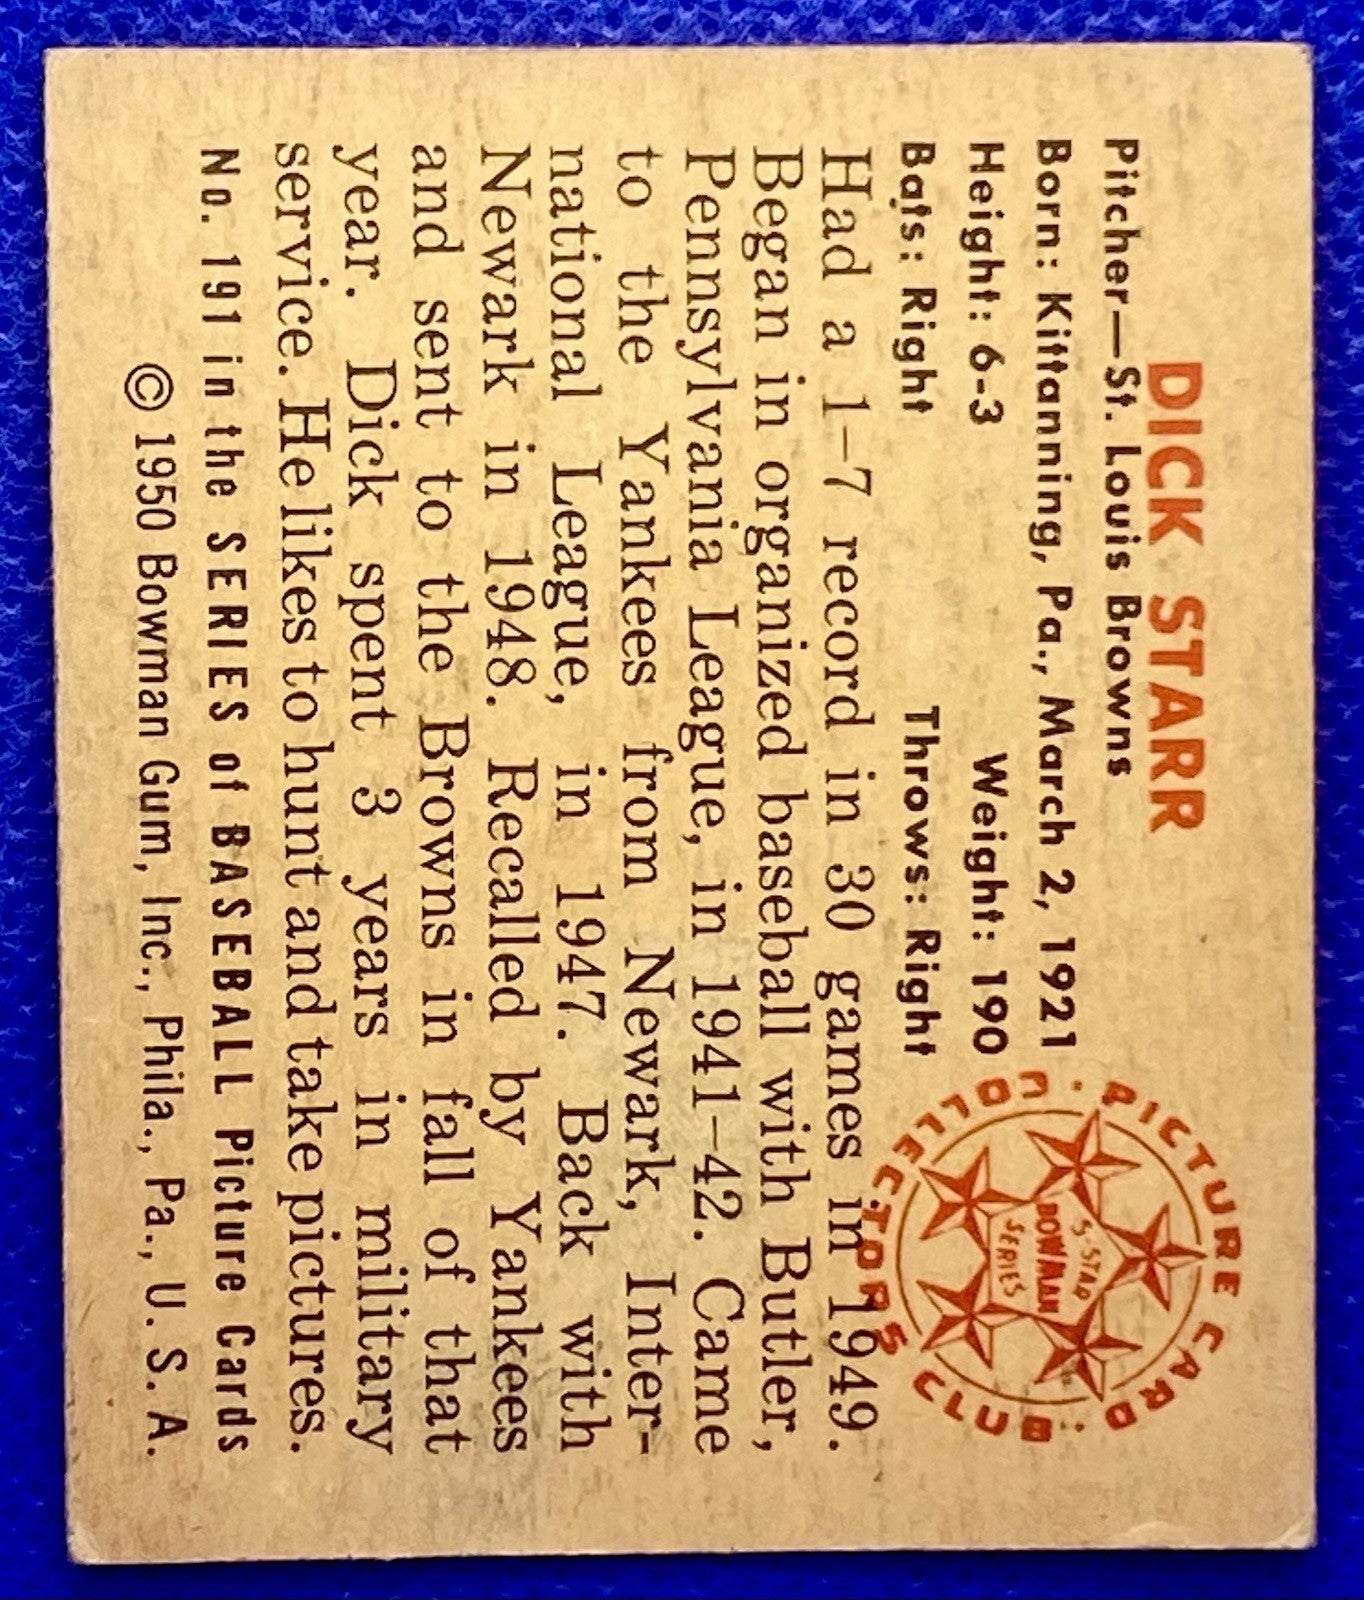 DICK STARR
Pitcher—St. Louis Browns
Born: Kittanning, Pa., March 2, 1921
Height: 6-3 Weight: 190
Bats: Right Throws: Right
Had a 1–7 record in 30 games in 1949.
Began in organized baseball with Butler,
Pennsylvania League, in 1941–42. Came
to the Yankees from Newark, Inter-
national League, in 1947. Back with
Newark in 1948. Recalled by Yankees
and sent to the Browns in fall of that
year. Dick spent 3 years in military
service. He likes to hunt and take pictures.
No. 191 in the SERIES of BASEBALL Picture Cards
© 1950 Bowman Gum, Inc., Phila., Pa., U. S. A.
PICTURE CARD
COLLECTORS CLUB
5-STAR
BOWMAN
SERIES